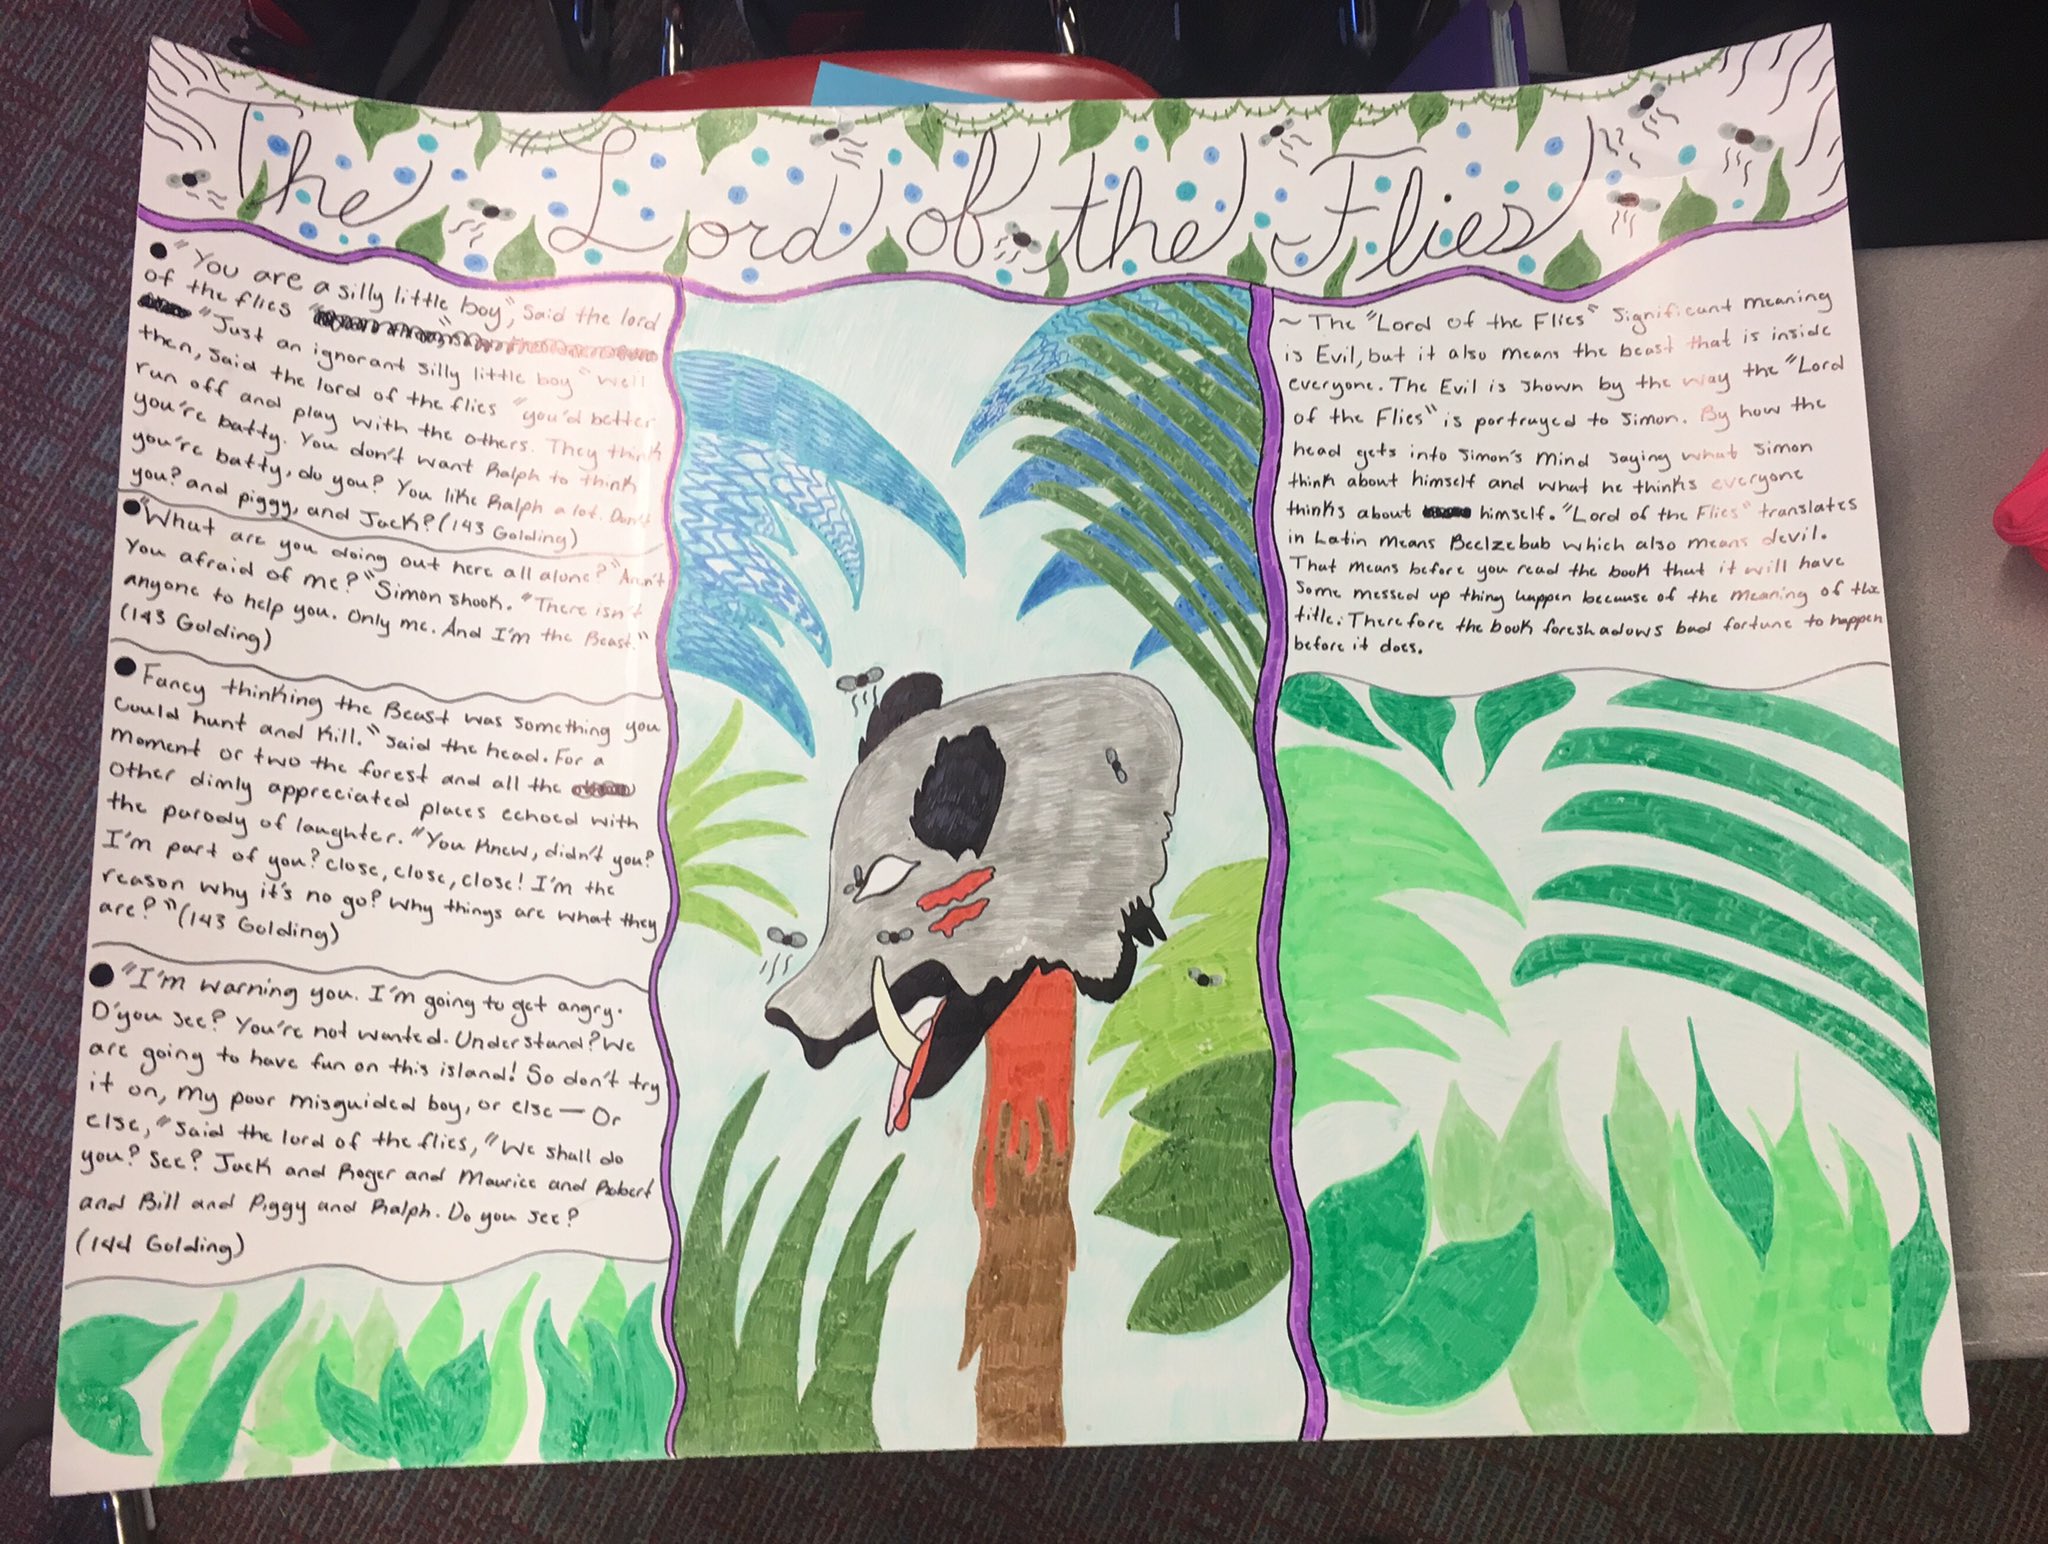 The Lord of the Flies
• "You are a silly little boy", Said the lord
of the flies
"Just an ignorant silly little boy" "well
then, said the lord of the flies "you'd better
run off and play with the others. They think
you're batty. You don't want Ralph to think
you're batty, do you? You like Ralph a lot. Don't
you? and piggy, and Jack? (143 Golding)
• "What are you doing out here all alone?" Aren't
You afraid of me?" Simon shook. "There isn't
anyone to help you. Only me. And I'm the Beast."
(143 Golding)
• Fancy thinking the Beast was something you
Could hunt and kill." Said the head. For a
moment or two the forest and all the
other dimly appreciated places echoed with
the parody of laughter. "You knew, didn't you?
I'm part of you? close, close, close! I'm the
reason why it's no go? Why things are what they
are?" (143 Golding)
• "I'm warning you. I'm going to get angry.
D'you see? You're not wanted. Understand? We
are going to have fun on this island! So don't try
it on, my poor misguided boy, or else — Or
else," said the lord of the flies, "We shall do
you? See? Jack and Roger and Maurice and Robert
and Bill and Piggy and Ralph. Do you see?
(144 Golding)
~ The "Lord of the Flies" Significant meaning
is Evil, but it also means the beast that is inside
everyone. The Evil is shown by the way the "Lord
of the Flies" is portrayed to Simon. By how the
head gets into Simon's Mind saying what Simon
think about himself and what he thinks everyone
thinks about himself. "Lord of the Flies" translates
in Latin means Beelzebub which also means devil.
That means before you read the book that it will have
Some messed up thing happen because of the meaning of the
title. Therefore the book foreshadows bad fortune to happen
before it does.